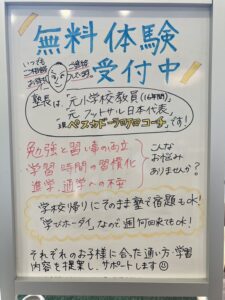 無料体験
受付中
いつでも
ご相談
お気軽に
塾長は、元小学校教員(16年間)
元フットサル日本代表
"現ペスカドーラ町田コーチ"です!
勉強と習い事の両立
学習時間の習慣化
進学、通学への不安
こんな
お悩み
ありませんか?
学校帰りにそのまま塾で宿題もOK!
「学びホーダイ」なので週何回来てもOK!
それぞれのお子様に合った通い方・学習
内容を提案し、サポートします